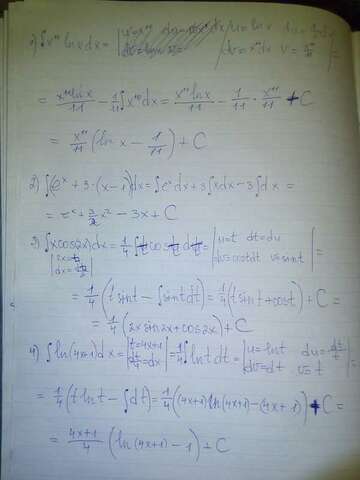 1) ∫x¹⁰ ln x dx = | u = ln x dv = x¹⁰ dx
= x¹¹ ln x / 11 − 1/11 ∫x¹⁰ dx = x¹¹ ln x / 11 − 1/11 · x¹¹/11 + C
= x¹¹/11 (ln x − 1/11) + C
2) ∫(eˣ + 3·(x−1))dx = ∫eˣdx + 3∫xdx − 3∫dx =
= eˣ + 3/2 x² − 3x + C
3) ∫x cos(2x)dx = 1/4 ∫t cos t dt = | u=t dt=du dv=cos t dt v=sin t | =
= 1/4 (t sin t − ∫sin t dt) = 1/4 (t sin t + cos t) + C =
= 1/4 (2x sin 2x + cos 2x) + C
4) ∫ln(4x+1)dx = | t=4x+1 dt/4=dx | = 1/4 ∫ln t dt = | u=ln t du=dt/t dv=dt v=t | =
= 1/4 (t ln t − ∫dt) = 1/4 ((4x+1)ln(4x+1) − (4x+1)) + C =
= (4x+1)/4 (ln(4x+1) − 1) + C